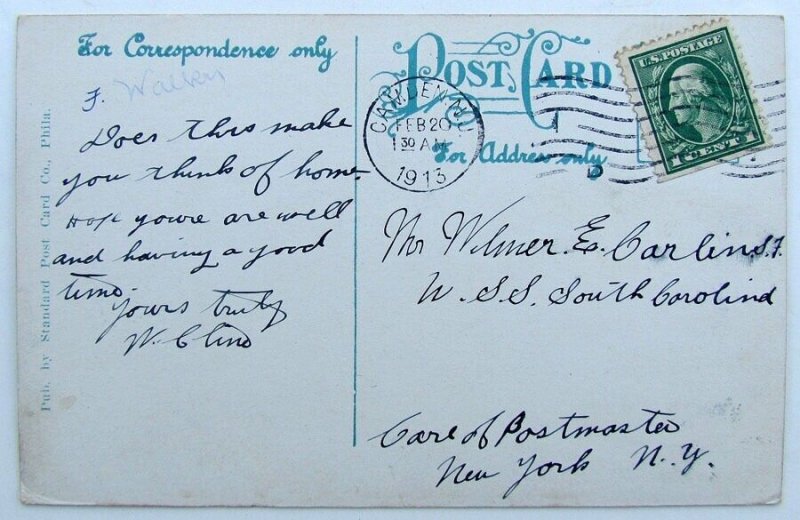 For Correspondence only
F. Walker
Does this make
you think of home.
Hope youre are well
and having a good
time.
Yours truly
W. Cline
Pub. by Standard Post Card Co., Phila.
POST CARD
CAMDEN, N.J.
FEB 20
1 30 AM
1913
For Address only
U.S. POSTAGE
1 CENT 1
Mr Wilmer. E. Carlin. S.F.
U. S. S. South Carolina
Care of Postmaster
New York N. Y.